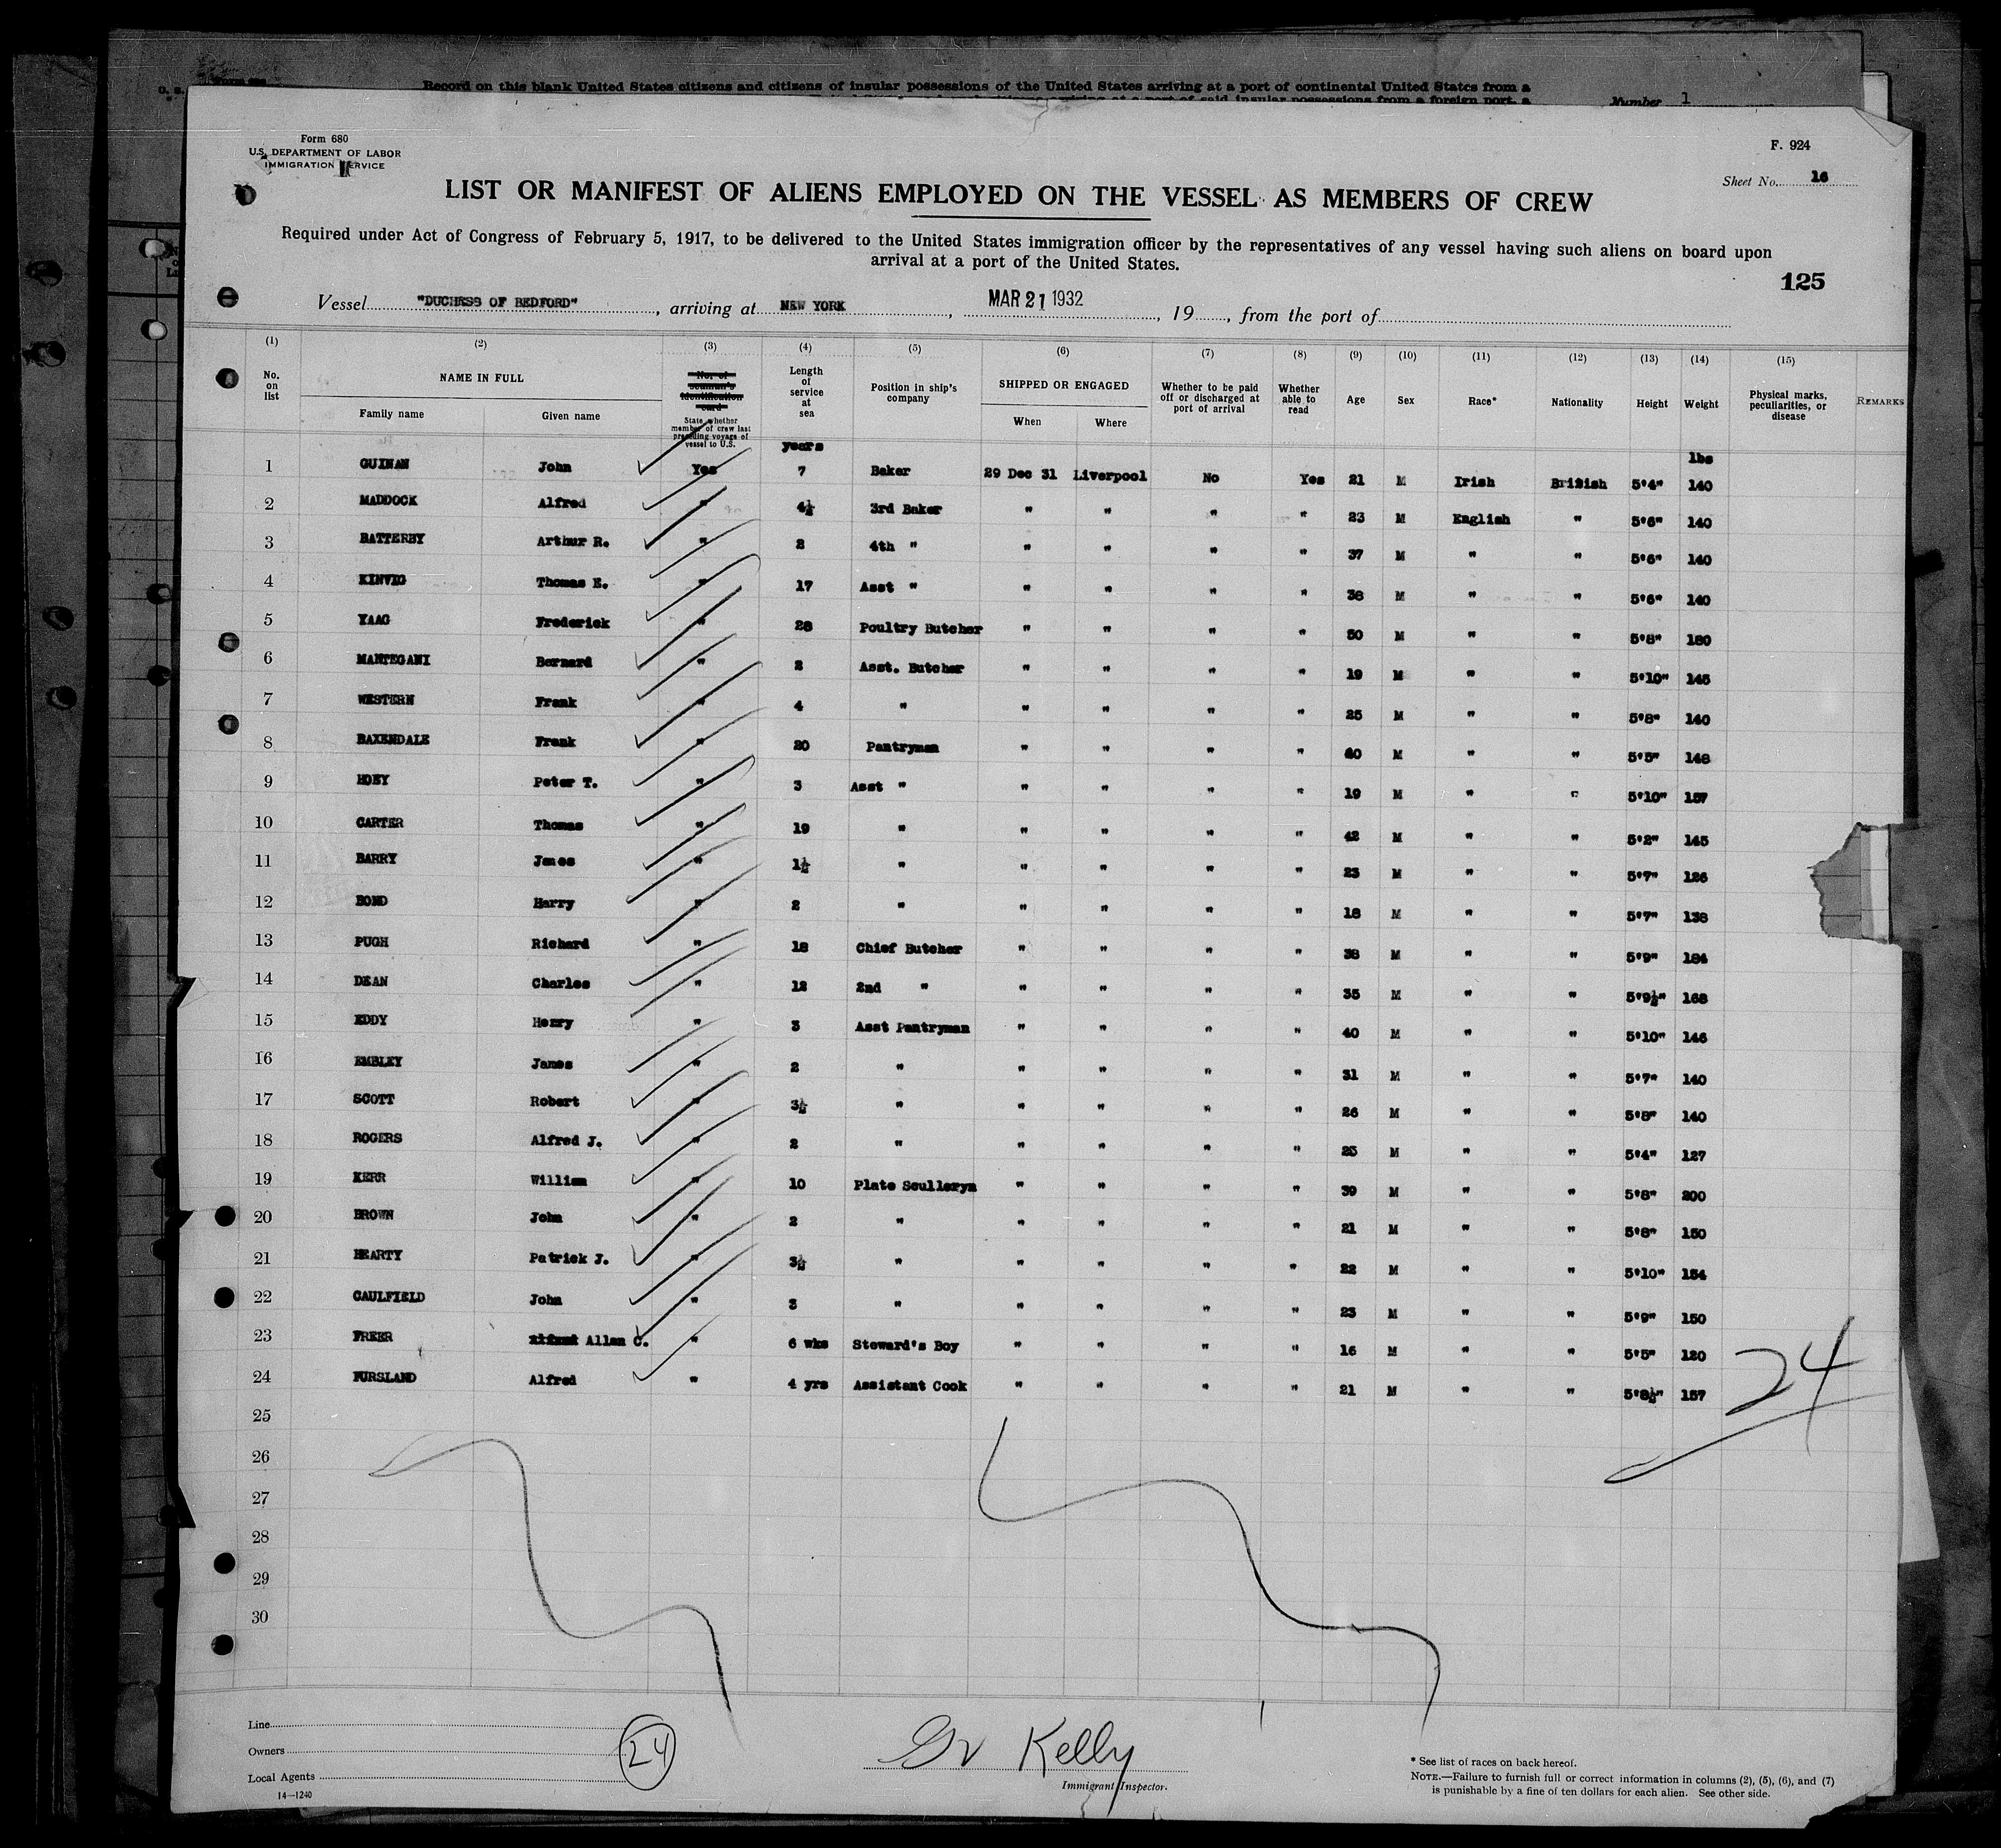 Record on this blank United States citizens and citizens of insular possessions of the United States arriving at a port of continental United States from a
Number 1
Form 680
U.S. DEPARTMENT OF LABOR
IMMIGRATION SERVICE
F. 924
Sheet No. 16
LIST OR MANIFEST OF ALIENS EMPLOYED ON THE VESSEL AS MEMBERS OF CREW
Required under Act of Congress of February 5, 1917, to be delivered to the United States immigration officer by the representatives of any vessel having such aliens on board upon
arrival at a port of the United States.
125
Vessel "DUCHESS OF BEDFORD", arriving at NEW YORK, MAR 21 1932, 19, from the port of
(1) (2) (3) (4) (5) (6) (7) (8) (9) (10) (11) (12) (13) (14) (15)
No. on list NAME IN FULL Family name Given name No. of seaman's identification card State whether member of crew last preceding voyage of vessel to U.S. Length of service at sea Position in ship's company SHIPPED OR ENGAGED When Where Whether to be paid off or discharged at port of arrival Whether able to read Age Sex Race* Nationality Height Weight Physical marks, peculiarities, or disease REMARKS
years lbs
1 GUINAN John Yes 7 Baker 29 Dec 31 Liverpool No Yes 21 M Irish British 5'4" 140
2 MADDOCK Alfred " 4½ 3rd Baker " " " " 23 M English " 5'6" 140
3 BATTERBY Arthur R. " 2 4th " " " " " 37 M " " 5'6" 140
4 KINVIG Thomas E. " 17 Asst " " " " " 38 M " " 5'6" 140
5 YAAG Frederick " 28 Poultry Butcher " " " " 50 M " " 5'8" 180
6 MANTEGANI Bernard " 2 Asst. Butcher " " " " 19 M " " 5'10" 145
7 WESTERN Frank " 4 " " " " " 25 M " " 5'8" 140
8 BAXENDALE Frank " 20 Pantryman " " " " 40 M " " 5'5" 148
9 HOEY Peter T. " 3 Asst " " " " " 19 M " " 5'10" 157
10 CARTER Thomas " 19 " " " " " 42 M " " 5'2" 145
11 BARRY James " 1½ " " " " " 23 M " " 5'7" 126
12 BOND Harry " 2 " " " " " 18 M " " 5'7" 138
13 PUGH Richard " 18 Chief Butcher " " " " 38 M " " 5'9" 184
14 DEAN Charles " 12 2nd " " " " " 35 M " " 5'9½" 168
15 EDDY Henry " 3 Asst Pantryman " " " " 40 M " " 5'10" 146
16 EMBLEY James " 2 " " " " " 31 M " " 5'7" 140
17 SCOTT Robert " 3½ " " " " " 26 M " " 5'8" 140
18 ROGERS Alfred J. " 2 " " " " " 25 M " " 5'4" 127
19 KERR William " 10 Plate Sculleryn " " " " 39 M " " 5'8" 200
20 BROWN John " 2 " " " " " 21 M " " 5'8" 150
21 HEARTY Patrick J. " 3½ " " " " " 22 M " " 5'10" 154
22 CAULFIELD John " 3 " " " " " 23 M " " 5'9" 150
23 FREER Allan C. " 6 wks Steward's Boy " " " " 16 M " " 5'5" 120
24 FURSLAND Alfred " 4 yrs Assistant Cook " " " " 21 M " " 5'8½" 157
24
25
26
27
28
29
30
Line
Owners
Local Agents
14—1240
24
Kelly
Immigrant Inspector.
* See list of races on back hereof.
NOTE.—Failure to furnish full or correct information in columns (2), (5), (6), and (7)
is punishable by a fine of ten dollars for each alien. See other side.